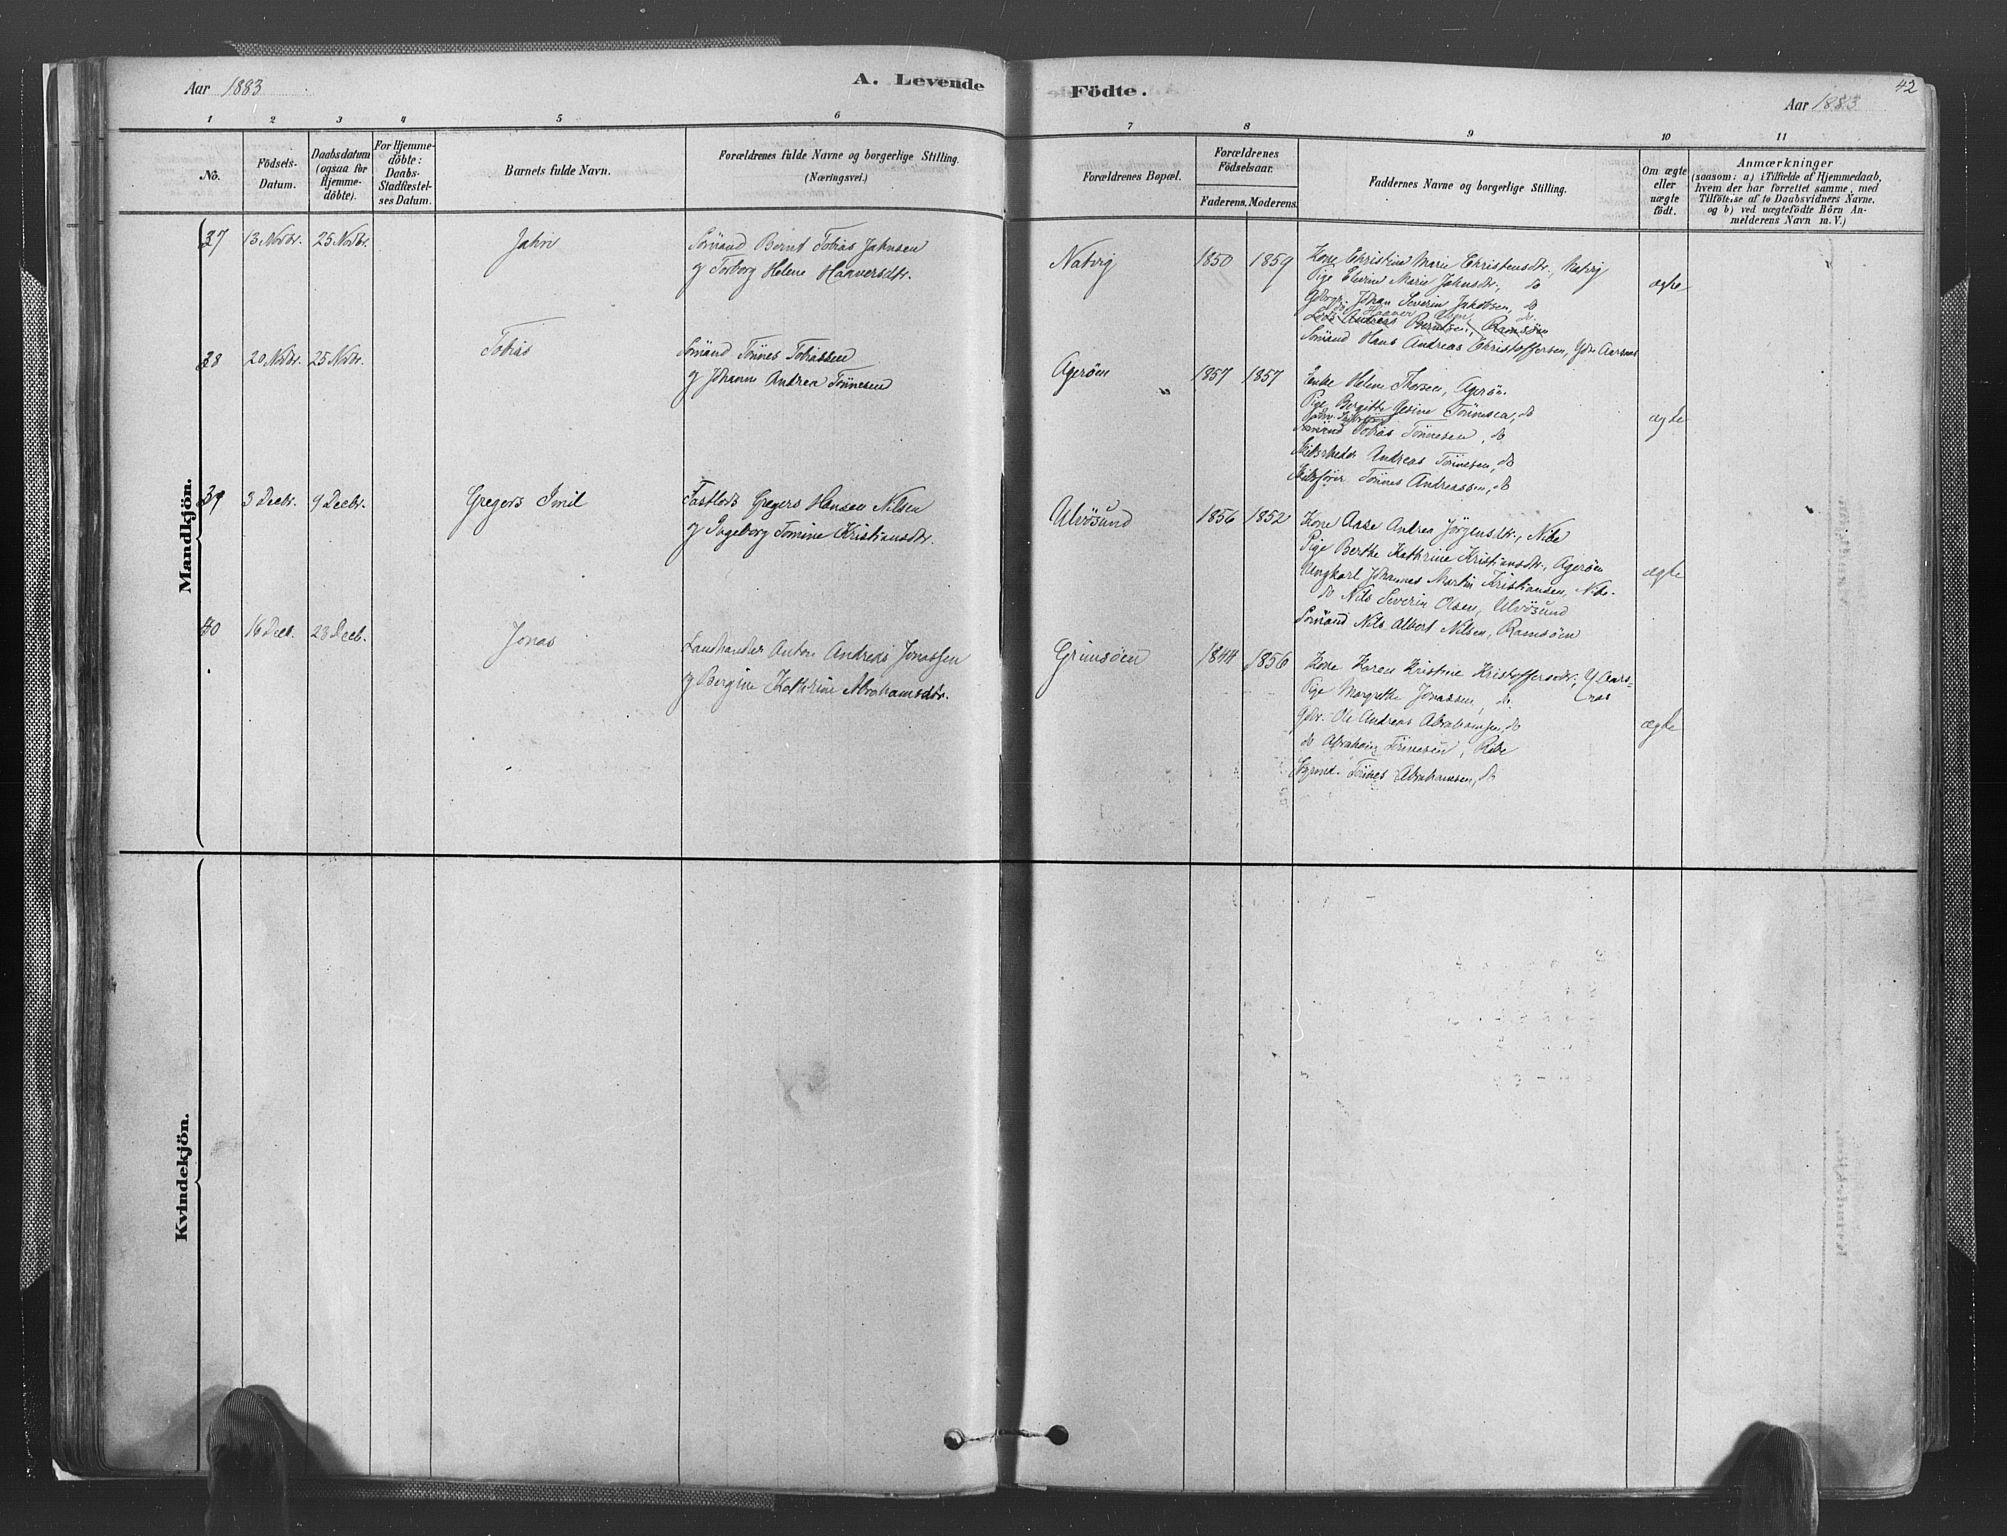 Aar 1883
A. Levende
Födte.
Aar 1883
42
1 2 3 4 5 6 7 8 9 10 11
No.
Födsels-
Datum.
Daabsdatum
(ogsaa for
Hjemme-
döbte).
For Hjemme-
döbte:
Daabs-
Stadfæstel-
ses Datum.
Barnets fulde Navn.
Forældrenes fulde Navne og borgerlige Stilling.
(Næringsvei.)
Forældrenes Bopæl.
Forældrenes
Födselsaar.
Faderens. Moderens.
Faddernes Navne og borgerlige Stilling.
Om ægte
eller
uægte
födt.
Anmærkninger
(saasom: a) i Tilfælde af Hjemmedaab,
hvem der har forrettet samme, med
Tilföielse af to Daabsvidners Navne.
og b) ved uægtefödte Börn An-
melderens Navn m. V.)
Mandkjön.
37 13 Novbr. 25 Novbr.
Sömand Bernt Tobias Jahnsen
og Torborg Helene Haaversdtr.
Natvig
1850 1859
Kone Christine Marie Christensdtr., Natvig
Pige Elevine Marie Jahnsdtr., do
Johan Severin Jakobsen, do
Andreas Berntsen, Ramsöen
Sömand Hans Andreas Christoffersen, Ydre Aarsnes
ægte
38 20 Novbr. 25 Novbr.
Tobias
Sömand Tönnes Tobiassen
og Johanne Andrea Tönnesen
Agerøen
1857 1857
Enke Helene Thorsen, Agerøen
Pige Bergitte Gesine Tönnesen, do
Sömand Tobias Tönnesen, do
Andreas Tönnesen, do
Tönnes Andreassen, do
ægte
39 3 Decbr. 9 Decbr.
Gregers Imil
Fastlods Gregers Hansen Nilsen
og Ingeborg Tomine Kristiansdtr.
Ulvøsund
1856 1852
Kone Aase Andrea Jörgensdtr., Nibe
Pige Berthe Kathrine Kristiansdtr., Agerøen
Ungkarl Johannes Martin Kristiansen, Nibe.
do Nils Severin Olsen, Ulvøsund
Sömand Nils Albert Nilsen, Ramsøen
ægte
40 16 Decb. 23 Decb.
Jonas
Landhandler Anton Andreas Jonassen
og Bergine Kathrine Abrahamsdtr.
Grimsøen
1844 1856
Kone Karen Kristine Kristoffersdtr., Y. Aars-
nes
Pige Margrethe Jonassen, do.
Gdbr. Ole Andreas Abrahamsen, do
do Abraham Tönnesen,
Tönnes Abrahamsen, do
ægte
Kvindekjön.